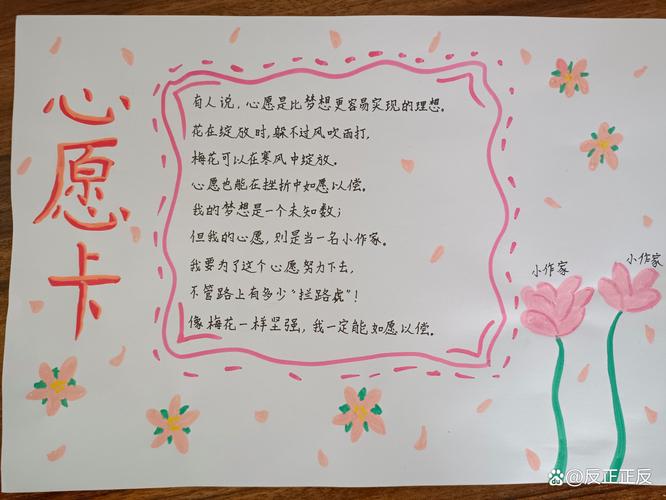 心愿卡
有人说，心愿是比梦想更容易实现的理想。
花在绽放时，躲不过风吹雨打，
梅花可以在寒风中绽放。
心愿也能在挫折中如愿以偿。
我的梦想是一个未知数；
但我的心愿，则是当一名小作家。
我要为了这个心愿努力下去，
不管路上有多少“拦路虎”！
像梅花一样坚强，我一定能如愿以偿。
小作家
小作家
@反正正反